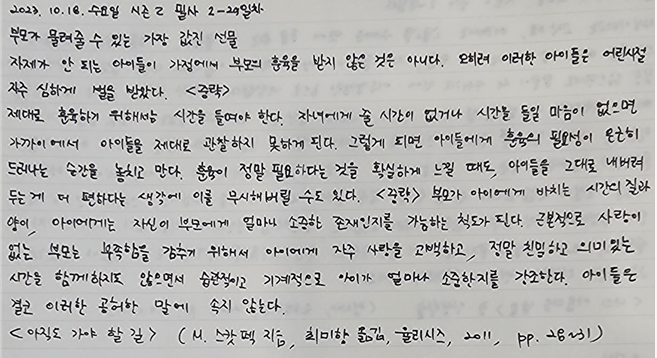 2023. 10. 18. 수요일 시즌 2 필사 2-29일차
부모가 물려줄 수 있는 가장 값진 선물
자제가 안 되는 아이들이 가정에서 부모의 훈육을 받지 않은 것은 아니다. 오히려 이러한 아이들은 어린시절
자주 심하게 벌을 받았다. <중략>
제대로 훈육하기 위해서는 시간을 들여야 한다. 자녀에게 줄 시간이 없거나 시간을 들일 마음이 없으면
가까이에서 아이들을 제대로 관찰하지 못하게 된다. 그렇게 되면 아이들에게 훈육의 필요성이 은근히
드러나는 순간을 놓치고 만다. 훈육이 정말 필요하다는 것을 확실하게 느낄 때도, 아이들을 그대로 내버려
두는 게 더 편하다는 생각에 이를 무시해버릴 수도 있다. <중략> 부모가 아이에게 바치는 시간의 질과
양이, 아이에게는 자신이 부모에게 얼마나 소중한 존재인지를 가늠하는 척도가 된다. 근본적으로 사랑이
없는 부모는 부족함을 감추기 위해서 아이에게 자주 사랑을 고백하고, 정말 친밀하고 의미있는
시간을 함께하지도 않으면서 습관적이고 기계적으로 아이가 얼마나 소중한지를 강조한다. 아이들은
결코 이러한 공허한 말에 속지 않는다.
<아직도 가야 할 길> (M. 스캇 펙 지음, 최미향 옮김, 율리시스, 2011, pp. 28~31)